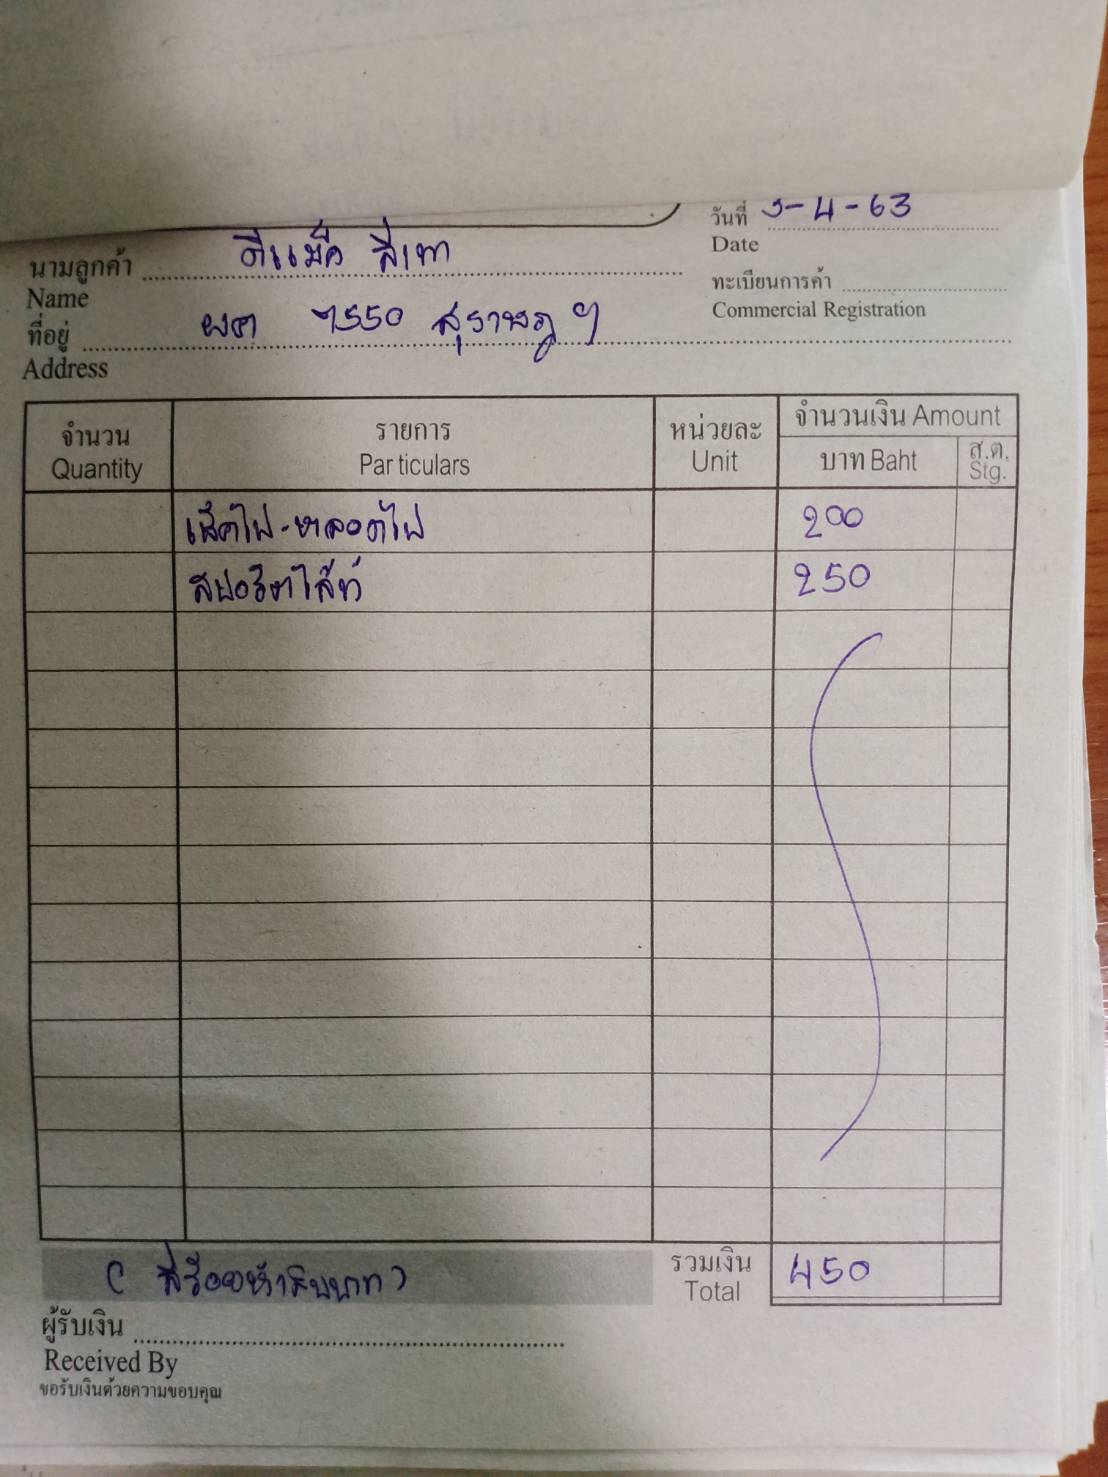 วันที่ 5-4-63
Date
นามลูกค้า ดีแม็ค สีเทา
Name
ทะเบียนการค้า
Commercial Registration
ที่อยู่ ผต 7550 สุราษฎฯ
Address
จำนวน รายการ หน่วยละ จำนวนเงิน Amount
Quantity Particulars Unit บาท Baht ส.ต. Stg.
เช็คไฟ-หลอดไฟ 200
สปอร์ตไล้ท์ 250
(สี่ร้อยห้าสิบบาท) รวมเงิน 450
Total
ผู้รับเงิน
Received By
ขอรับเงินด้วยความขอบคุณ